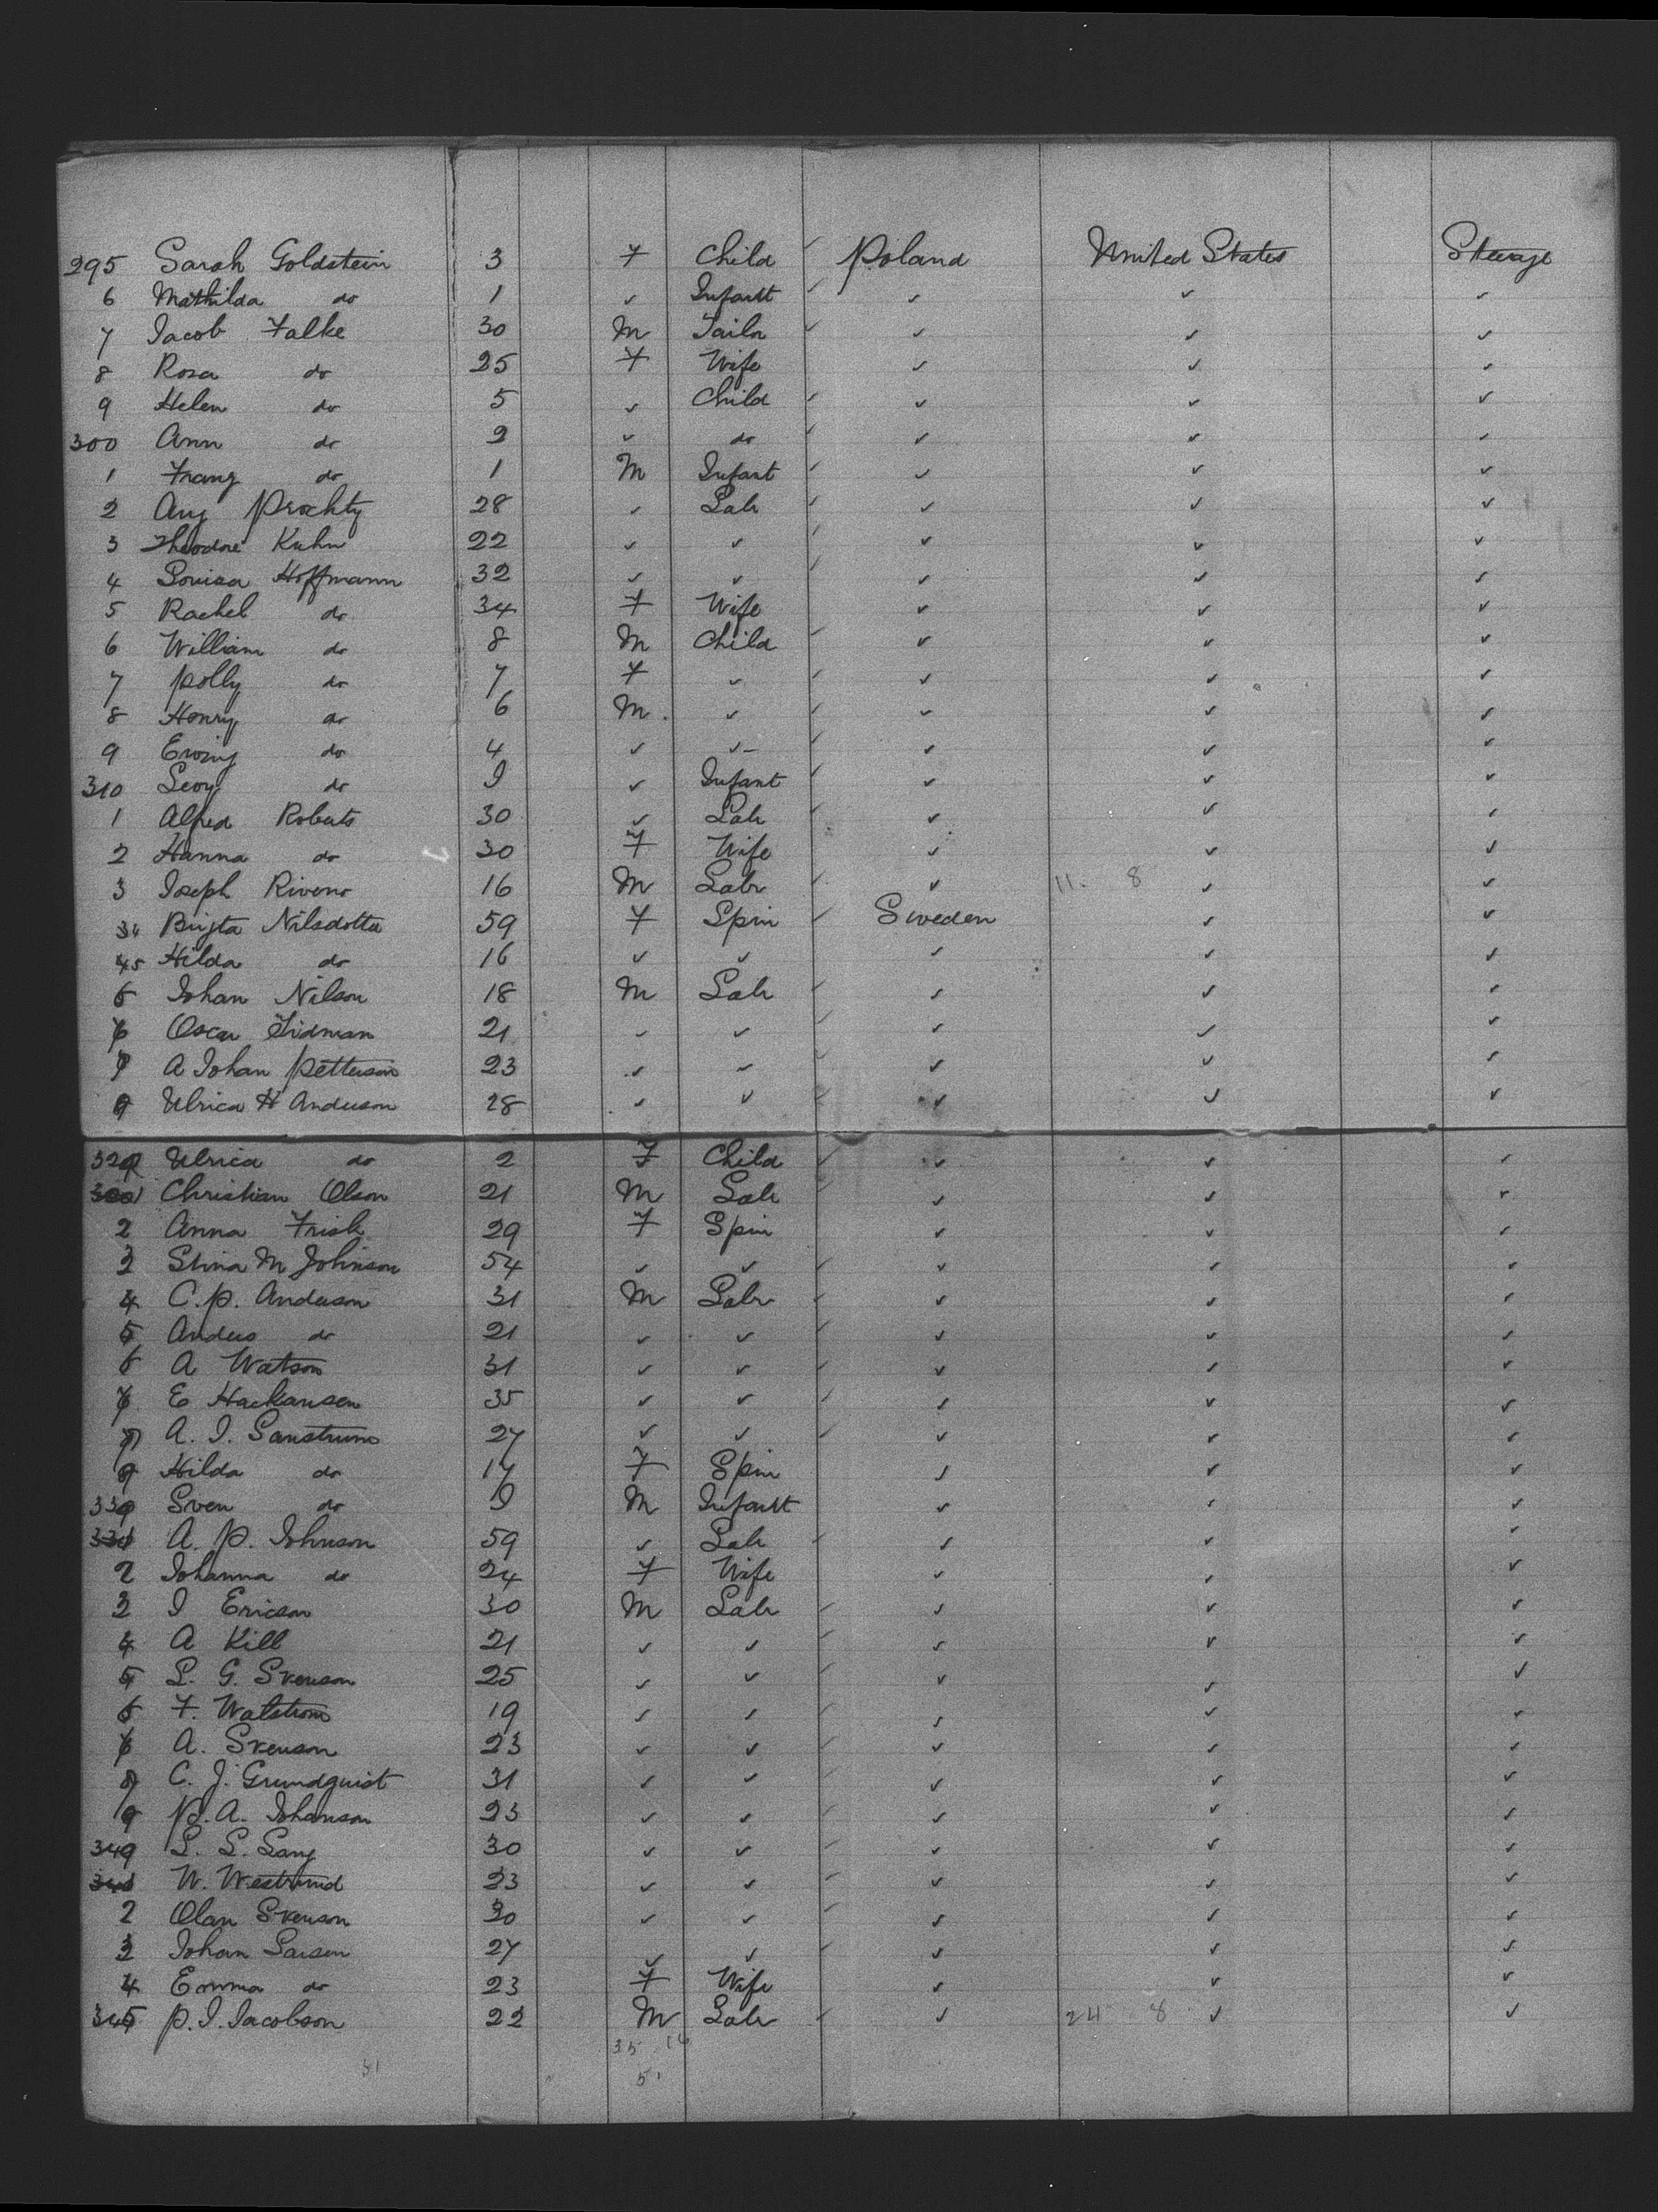 295 Sarah Goldstein 3 F Child ✓ Poland United States Steerage
6 Mathilda do 1 ✓ Infant ✓ ✓ ✓
7 Jacob Falke 30 M Tailor ✓ ✓ ✓
8 Rosa do 25 F Wife ✓ ✓ ✓
9 Helen do 5 ✓ Child ✓ ✓ ✓
300 Ann do 2 ✓ do ✓ ✓ ✓
1 Franz do 1 M Infant ✓ ✓ ✓
2 Aug Prochty 28 ✓ Labr ✓ ✓ ✓
3 Theodore Kuhn 22 ✓ ✓ ✓ ✓ ✓
4 Louisa Hoffmann 32 ✓ ✓ ✓ ✓ ✓
5 Rachel do 34 F Wife ✓ ✓ ✓
6 William do 8 M Child ✓ ✓ ✓
7 Polly do 7 F ✓ ✓ ✓ ✓
8 Henry do 6 M ✓ ✓ ✓ ✓
9 Ewing do 4 ✓ ✓ ✓ ✓ ✓
310 Levy do ✓ Infant ✓ ✓ ✓
1 Alfred Roberts 30 ✓ Labr ✓ ✓ ✓
2 Hanna do 30 F Wife ✓ ✓ ✓
3 Joseph Rivero 16 M Labr ✓ 11 8 ✓ ✓
34 Birgta Nilsdotter 59 F Spin Sweden ✓ ✓
45 Hilda do 16 ✓ ✓ ✓ ✓ ✓
6 Johan Nilson 18 M Labr ✓ ✓ ✓
Oscar Fridman 21 ✓ ✓ ✓ ✓ ✓
A Johan Petterson 23 ✓ ✓ ✓ ✓ ✓
Ulrica H Anderson 28 ✓ ✓ ✓ ✓ ✓
320 Ulrica do 2 F Child ✓ ✓ ✓
Christian Olson 21 M Labr ✓ ✓ ✓
2 Anna Frisk 29 F Spin ✓ ✓ ✓
3 Stina M Johnson 54 ✓ ✓ ✓ ✓ ✓
4 C. P. Anderson 31 M Labr ✓ ✓ ✓
5 Anders do 21 ✓ ✓ ✓ ✓ ✓
6 A Watson 31 ✓ ✓ ✓ ✓ ✓
E Hackansen 35 ✓ ✓ ✓ ✓ ✓
A. J. Sanstrum 27 ✓ ✓ ✓ ✓ ✓
9 Hilda do 17 F Spin ✓ ✓ ✓
330 Sven do M Infant ✓ ✓ ✓
331 A. P. Johnson 59 ✓ Labr ✓ ✓ ✓
2 Johanna do 24 F Wife ✓ ✓ ✓
3 J Ericson 30 M Labr ✓ ✓ ✓
4 A Kill 21 ✓ ✓ ✓ ✓ ✓
5 L. G. Svenson 25 ✓ ✓ ✓ ✓ ✓
6 F. Walstrom 19 ✓ ✓ ✓ ✓ ✓
A. Svenson 23 ✓ ✓ ✓ ✓ ✓
C. J. Grundquist 31 ✓ ✓ ✓ ✓ ✓
9 P. A. Johanson 23 ✓ ✓ ✓ ✓ ✓
340 L. L. Lang 30 ✓ ✓ ✓ ✓ ✓
341 W. Westrund 23 ✓ ✓ ✓ ✓ ✓
2 Olan Svenson 30 ✓ ✓ ✓ ✓ ✓
3 Johan Larsen 27 ✓ ✓ ✓ ✓ ✓
4 Emma do 23 F Wife ✓ ✓ ✓
345 P. J. Jacobson 22 M Labr ✓ 24 8 ✓ ✓
35 16
51 51